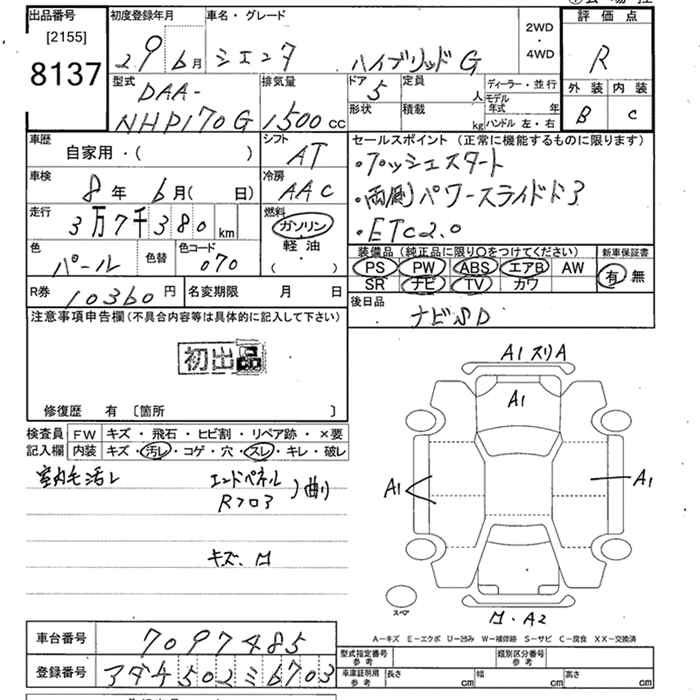 出品番号
[2155]
8137
初度登録年月
29 6月
車名・グレード
シエンタ ハイブリッドG
2WD
・
4WD
評価点
R
外装 内装
B C
型式
DAA-
NHP170G
排気量
1500 cc
ドア 5
定員 人
形状
積載 kg
ディーラー・並行
モデル年式 年
ハンドル 左・右
車歴
自家用・( )
シフト
AT
車検
8年 6月( 日)
冷房
AAC
走行
3万7千380km
燃料
ガソリン
軽油
( )
色
パール
色替
色コード
070
R券 10360円
名変期限 月 日
セールスポイント (正常に機能するものに限ります)
・プッシュスタート
・両側パワースライドドア
・ETC2.0
装備品 (純正品に限り〇をつけてください)
PS PW ABS エアB AW
SR ナビ TV カワ
新車保証書
有 無
後日品
ナビSD
注意事項申告欄(不具合内容等は具体的に記入して下さい)
初出品
修復歴 有 〔箇所 〕
検査員記入欄
FW キズ・飛石・ヒビ割・リペア跡・×要
内装 キズ・汚レ・コゲ・穴・スレ・キレ・破レ
室内毛活レ
エンドパネル
Rフロア
曲り
キズ、M
A1スリA
A1
A1
A1
スペア
M・A2
A−キズ E−エクボ U−凹み W−補修跡 S−サビ C−腐食 XX−交換済
車台番号 7097485
登録番号 アダチ502ミ6703
型式指定番号 参考
類別区分番号 参考
車庫証明用 参考
長さ cm
幅 cm
高さ cm